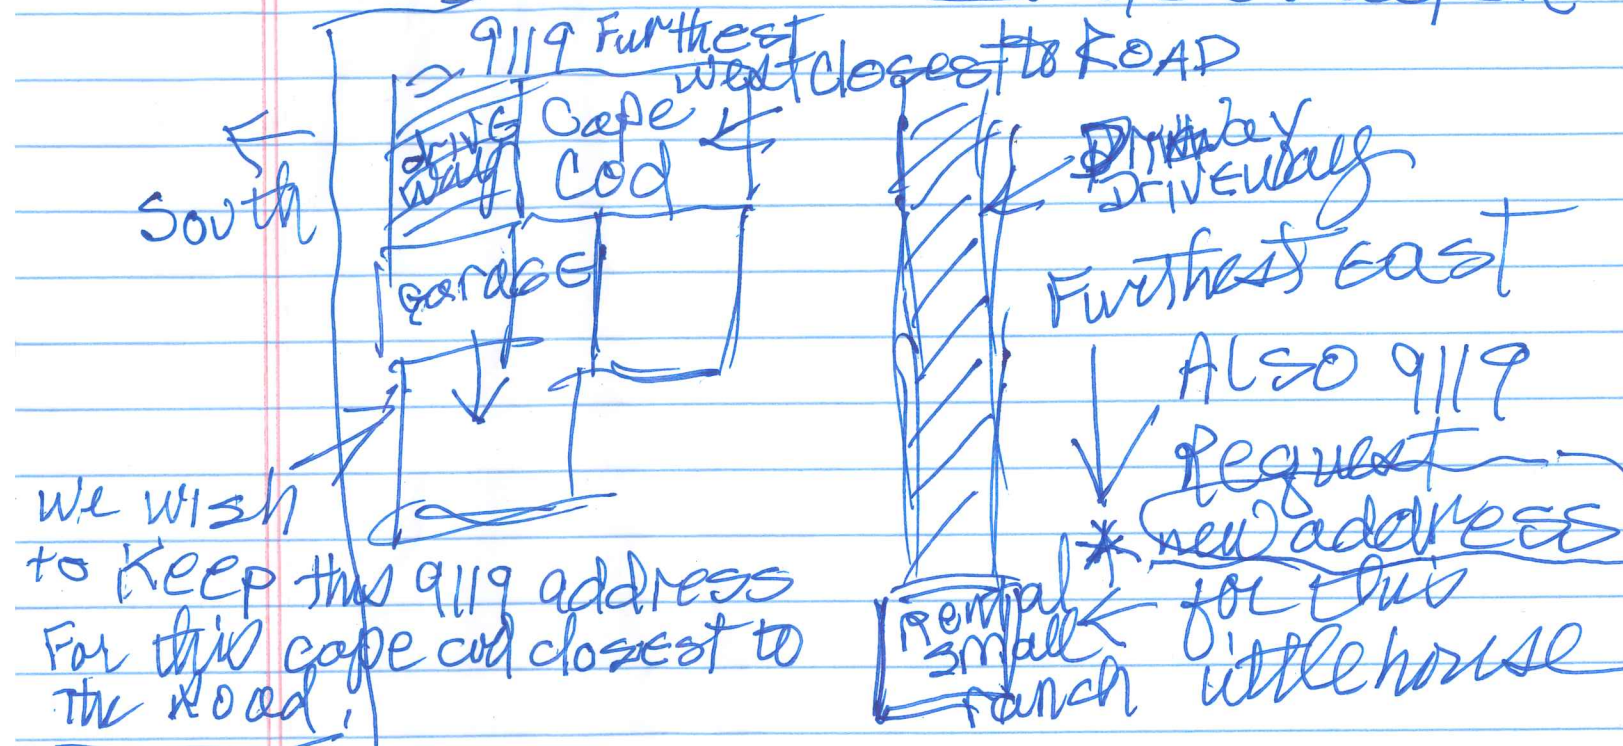 9119 Furthest
west closest to ROAD
Cape
Cod
drive
way
South
Driveway
Furthest east
garage
ALSO 9119
Request
* new address
for this
little house
Rental
small
ranch
we wish
to Keep this 9119 address
For this cape cod closest to
The Road!